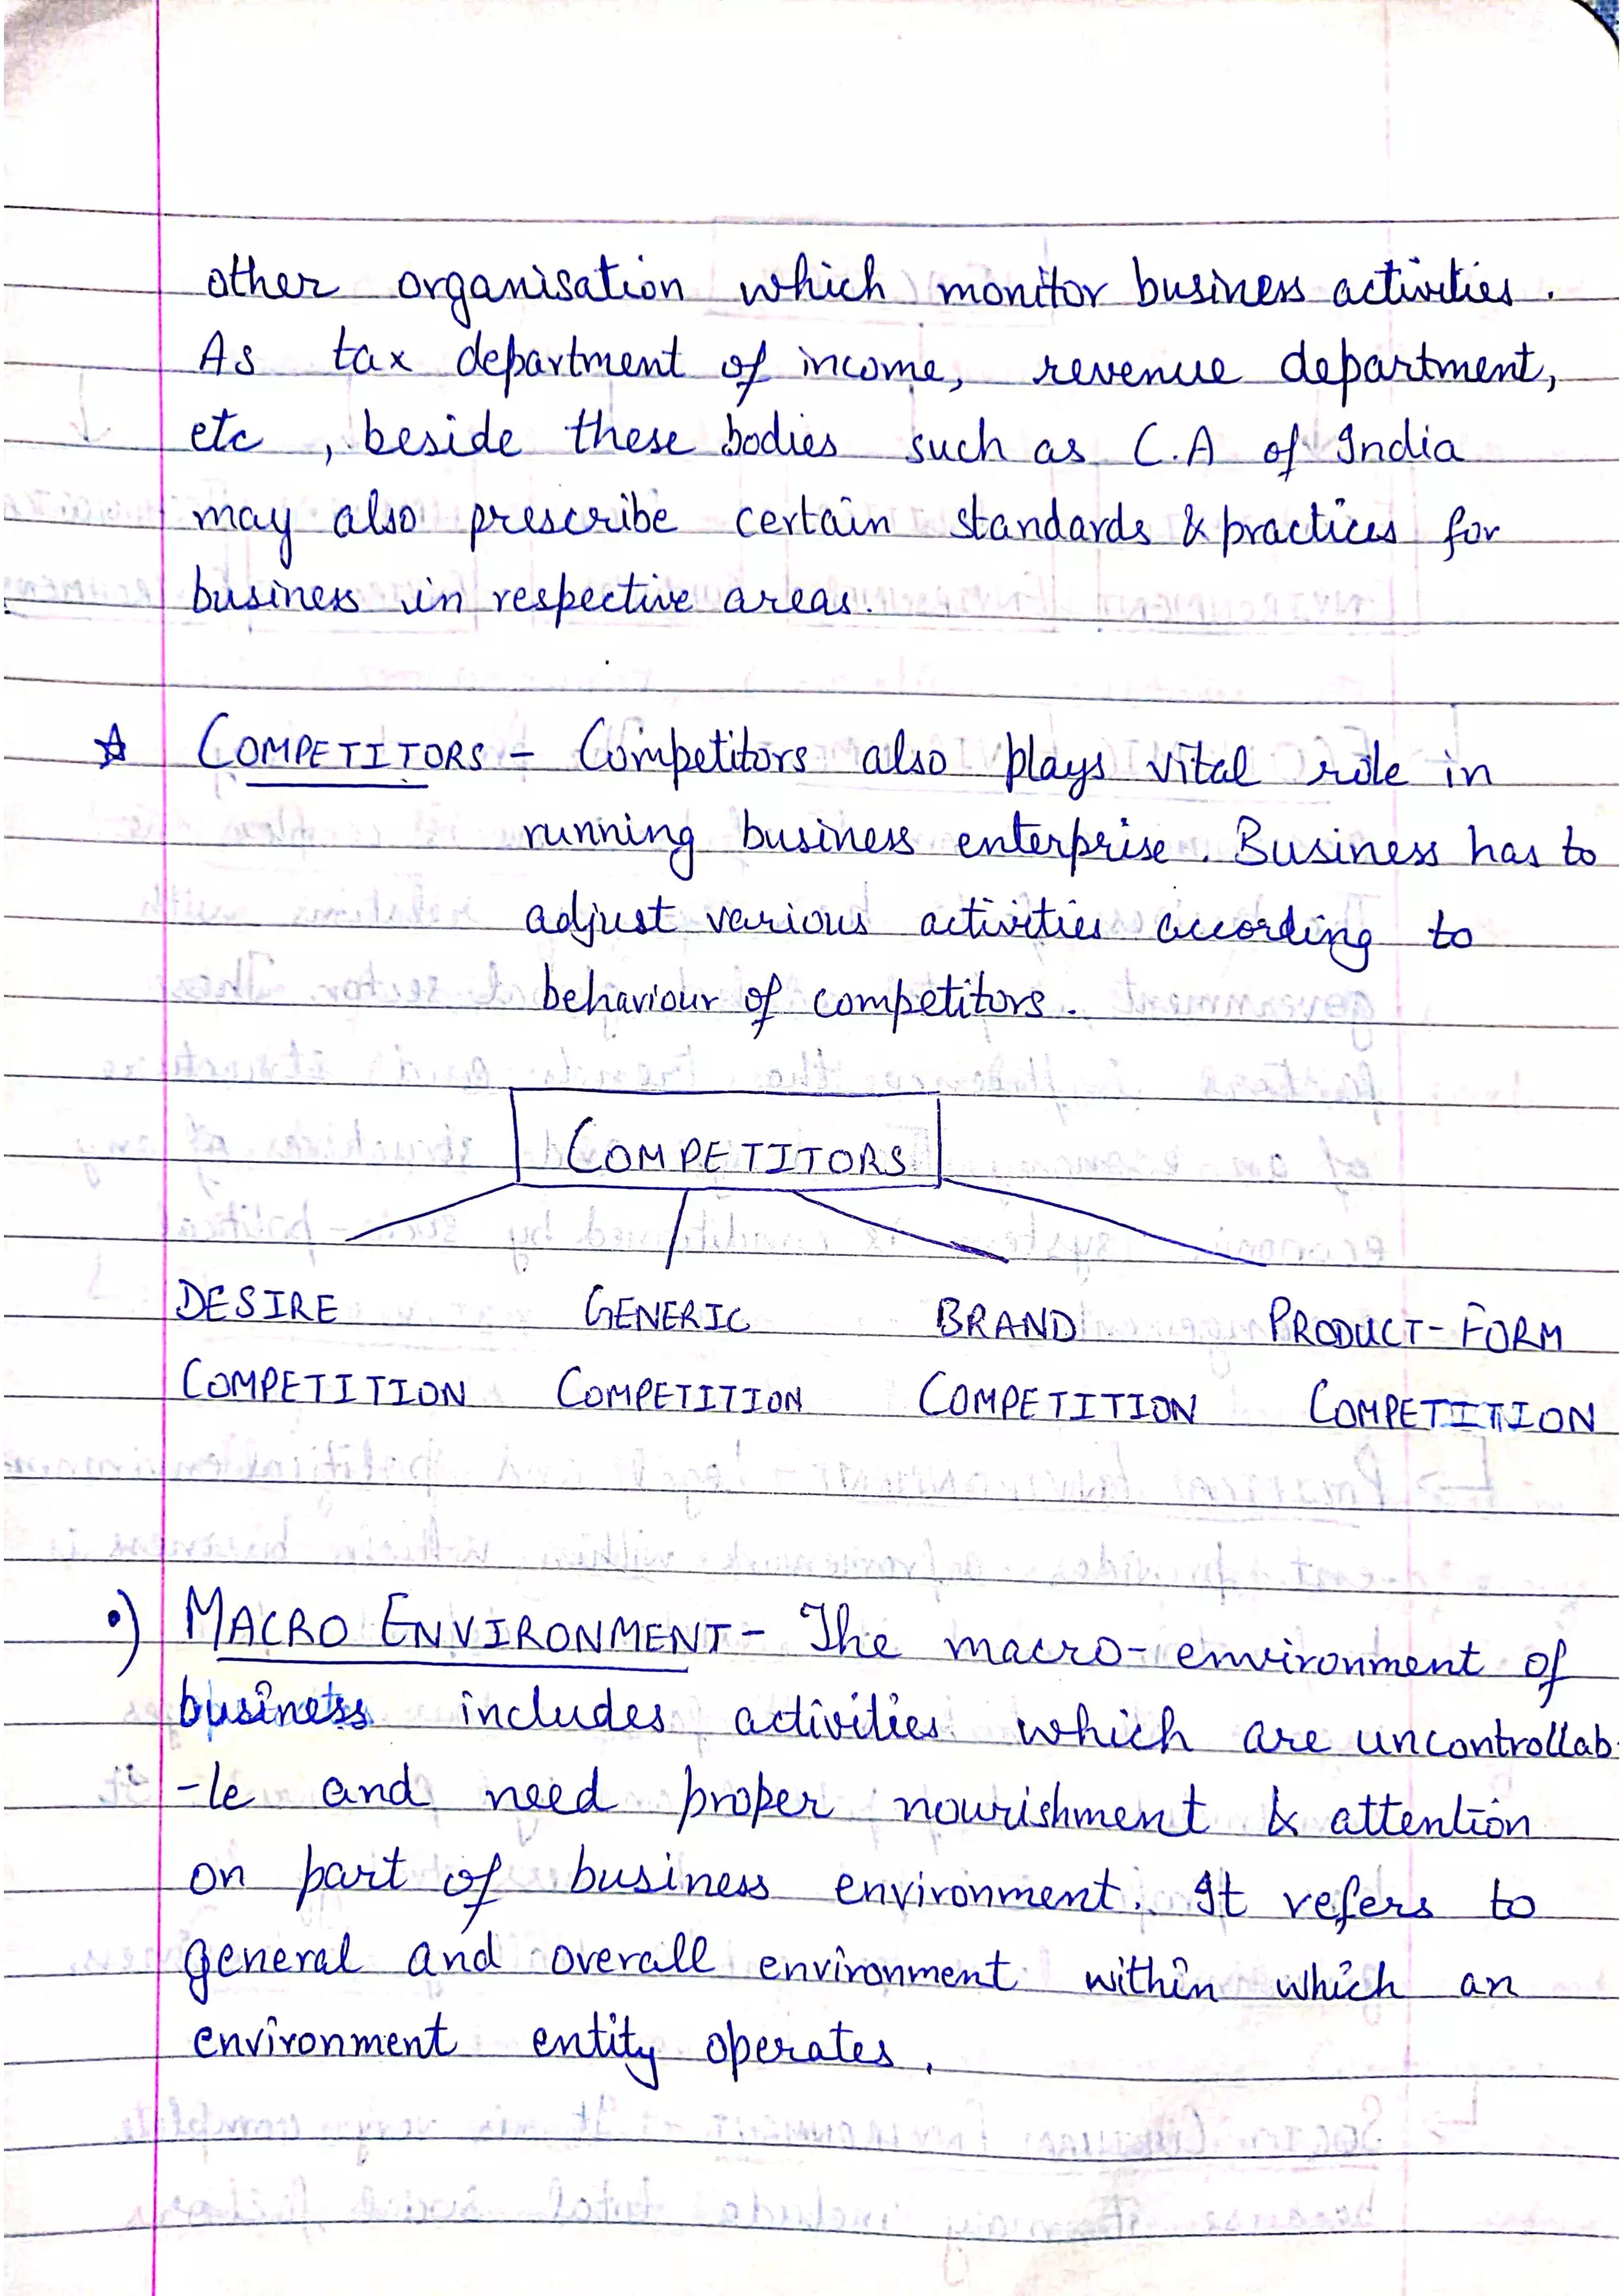 other organisation which monitor business activities.
As tax department of income, revenue department,
etc, beside these bodies such as C.A of India
may also prescribe certain standards & practices for
business in respective areas.
☆ COMPETITORS - Competitors also plays vital role in
running business enterprise. Business has to
adjust various activities according to
behaviour of competitors.
COMPETITORS
DESIRE GENERIC BRAND PRODUCT-FORM
COMPETITION COMPETITION COMPETITION COMPETITION
•) MACRO ENVIRONMENT- The macro-environment of
business includes activities which are uncontrollab-
-le and need proper nourishment & attention
on part of business environment. It refers to
general and overall environment within which an
environment entity operates.